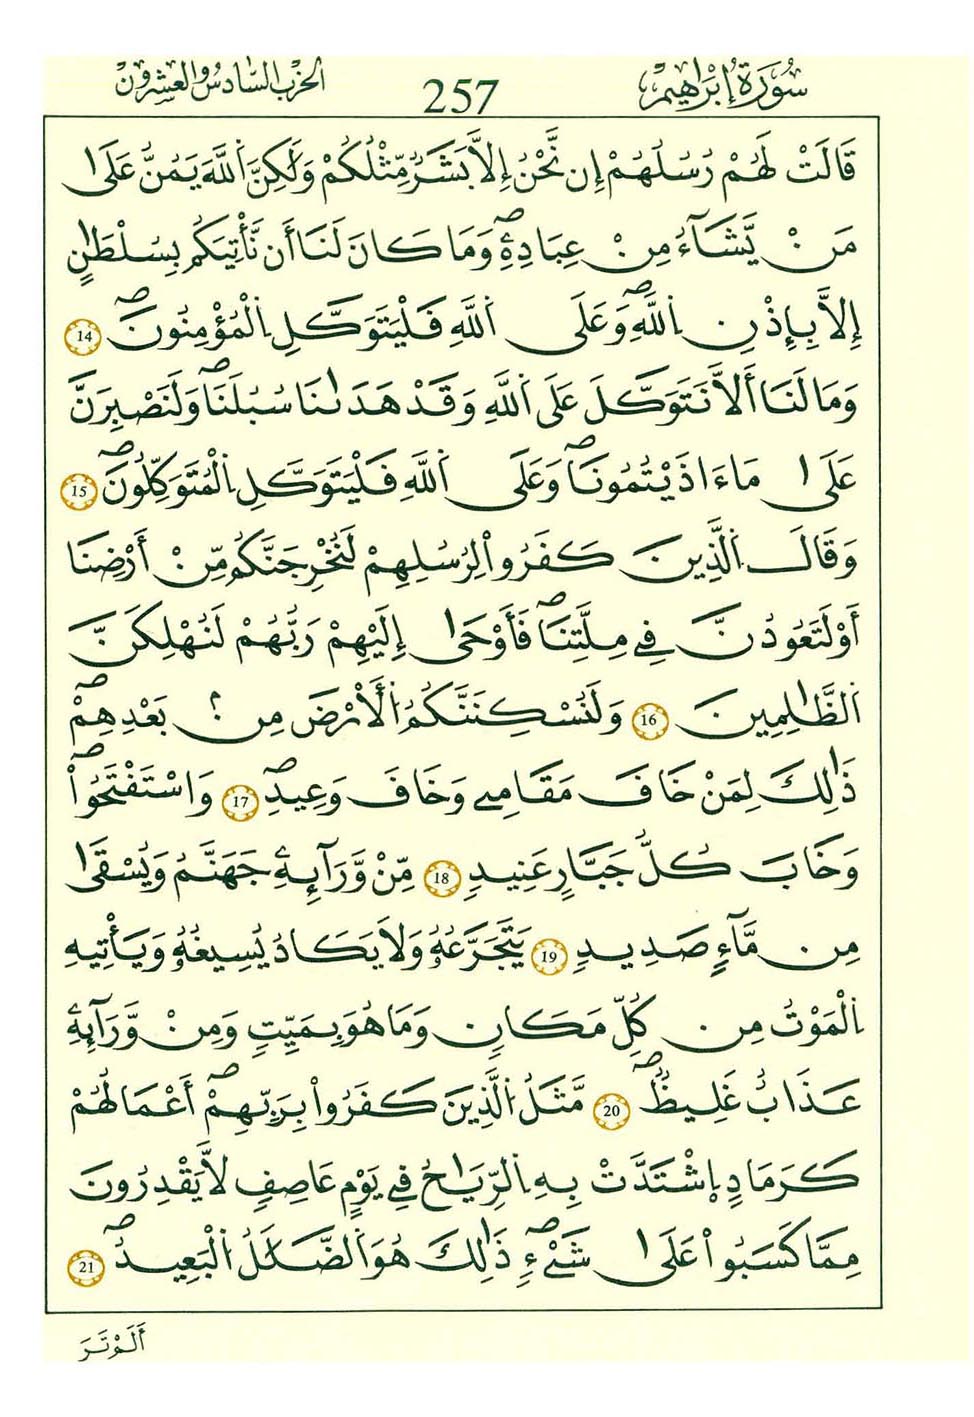 سُورَةُ إِبْرَاهِيمَ 257 الحزب السادس والعشرون
قَالَتْ لَهُمْ رُسُلُهُمْ إِن نَّحْنُ إِلاَّ بَشَرٌ مِّثْلُكُمْ وَلَٰكِنَّ اَ۬للَّهَ يَمُنُّ عَلَىٰ
مَنْ يَّشَآءُ مِنْ عِبَادِهِۦۖ وَمَا كَانَ لَنَا أَن نَّأْتِيَكُم بِسُلْطَٰنٍ
إِلاَّ بِإِذْنِ اِ۬للَّهِۖ وَعَلَى اَ۬للَّهِ فَلْيَتَوَكَّلِ اِ۬لْمُؤْمِنُونَۖ 14
وَمَا لَنَا أَلاَّ نَتَوَكَّلَ عَلَى اَ۬للَّهِ وَقَدْ هَدَىٰنَا سُبُلَنَاۖ وَلَنَصْبِرَنَّ
عَلَىٰ مَا ءَاذَيْتُمُونَاۖ وَعَلَى اَ۬للَّهِ فَلْيَتَوَكَّلِ اِ۬لْمُتَوَكِّلُونَۖ 15
وَقَالَ اَ۬لَّذِينَ كَفَرُواْ لِرُسُلِهِمْ لَنُخْرِجَنَّكُم مِّنْ أَرْضِنَا
أَوْ لَتَعُودُنَّ فِے مِلَّتِنَاۖ فَأَوْحَىٰ إِلَيْهِمْ رَبُّهُمْ لَنُهْلِكَنَّ
اَ۬لظَّٰلِمِينَ 16 وَلَنُسْكِنَنَّكُمُ اُ۬لْأَرْضَ مِنۢ بَعْدِهِمْۖ
ذَٰلِكَ لِمَنْ خَافَ مَقَامِے وَخَافَ وَعِيدِۖ 17 وَاسْتَفْتَحُواْۖ
وَخَابَ كُلُّ جَبَّارٍ عَنِيدٍ 18 مِّنْ وَّرَآئِهِۦ جَهَنَّمُ وَيُسْقَىٰ
مِن مَّآءٍ صَدِيدٍ 19 يَتَجَرَّعُهُۥ وَلاَ يَكَادُ يُسِيغُهُۥ وَيَأْتِيهِ
اِ۬لْمَوْتُ مِن كُلِّ مَكَانٍ وَمَا هُوَ بِمَيِّتٍ وَمِنْ وَّرَآئِهِۦ
عَذَابٌ غَلِيظٌۖ 20 مَّثَلُ اُ۬لَّذِينَ كَفَرُواْ بِرَبِّهِمْۖ أَعْمَالُهُمْ
كَرَمَادٍ اِ۪شْتَدَّتْ بِهِ اِ۬لرِّيَٰحُ فِے يَوْمٍ عَاصِفٍ لاَّ يَقْدِرُونَ
مِمَّا كَسَبُواْ عَلَىٰ شَيْءٍۖ ذَٰلِكَ هُوَ اَ۬لضَّلَٰلُ اُ۬لْبَعِيدُۖ 21
أَلَمْ تَرَ